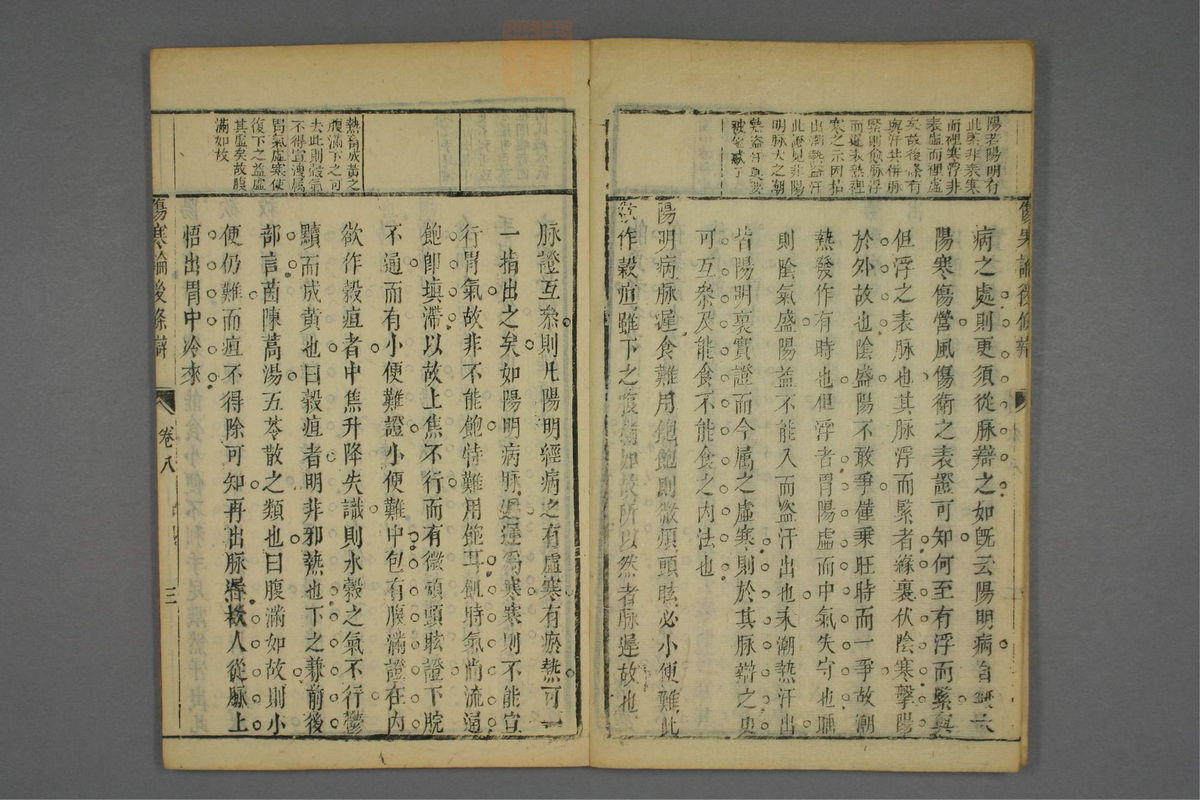 陽者陽明有
此緊非表寒
而裡寒浮非
表虛而裡虛
矣故後條有
與汗共併脉
緊則愈脉浮
而遲表熱裡
寒之示因拈
出潮熱盜汗
此證見非陽
明脉大之潮
熱盜汗莫要
被他惑了
傷寒論後條辯
病之處則更須從脉辯之如旣云陽明病自無太
陽寒傷營風傷衛之表證可知何至有浮而緊與
但浮之表脉也其脉浮而緊者緣裏伏陰寒擊陽
於外故也陰盛陽不敢爭僅乗旺時而一爭故潮
熱發作有時也但浮者胃陽虛而中氣失守也
則陰氣盛陽益不能入而盜汗出也夫潮熱汗出
皆陽明裏實證而今属之虛寒則於其脉辯之更
可互叅及能食不能食之内法也
陽明病脉遲食難用飽飽則微煩頭眩必小便難此
欲作穀疸雖下之腹滿如故所以然者脉遲故也
熱畜成黃之
腹滿下之可
去此則穀氣
不得宣洩属
胃氣虛寒使
復下之益虛
其虛矣故腹
滿如故
脉證互叅則凡陽明經病之有虛寒有瘀熱可一
一指出之矣如陽明病脉遲遲爲寒寒則不能宣
行胃氣故非不能飽特難用飽耳飢時氣尚流通
飽卽塡滯以故上焦不行而有微煩頭眩證下脘
不通而有小便難證小便難中包有腹滿證在内
欲作穀疸者中焦升降失職則水穀之氣不行鬱
黷而成黃也曰穀疸者明非邪熱也下之兼前後
部言茵陳蒿湯五苓散之類也曰腹滿如故則小
便仍難而疸不得除可知再出脉遲教人從脉上
悟出胃中冷來
傷寒論後條辯
卷八
三